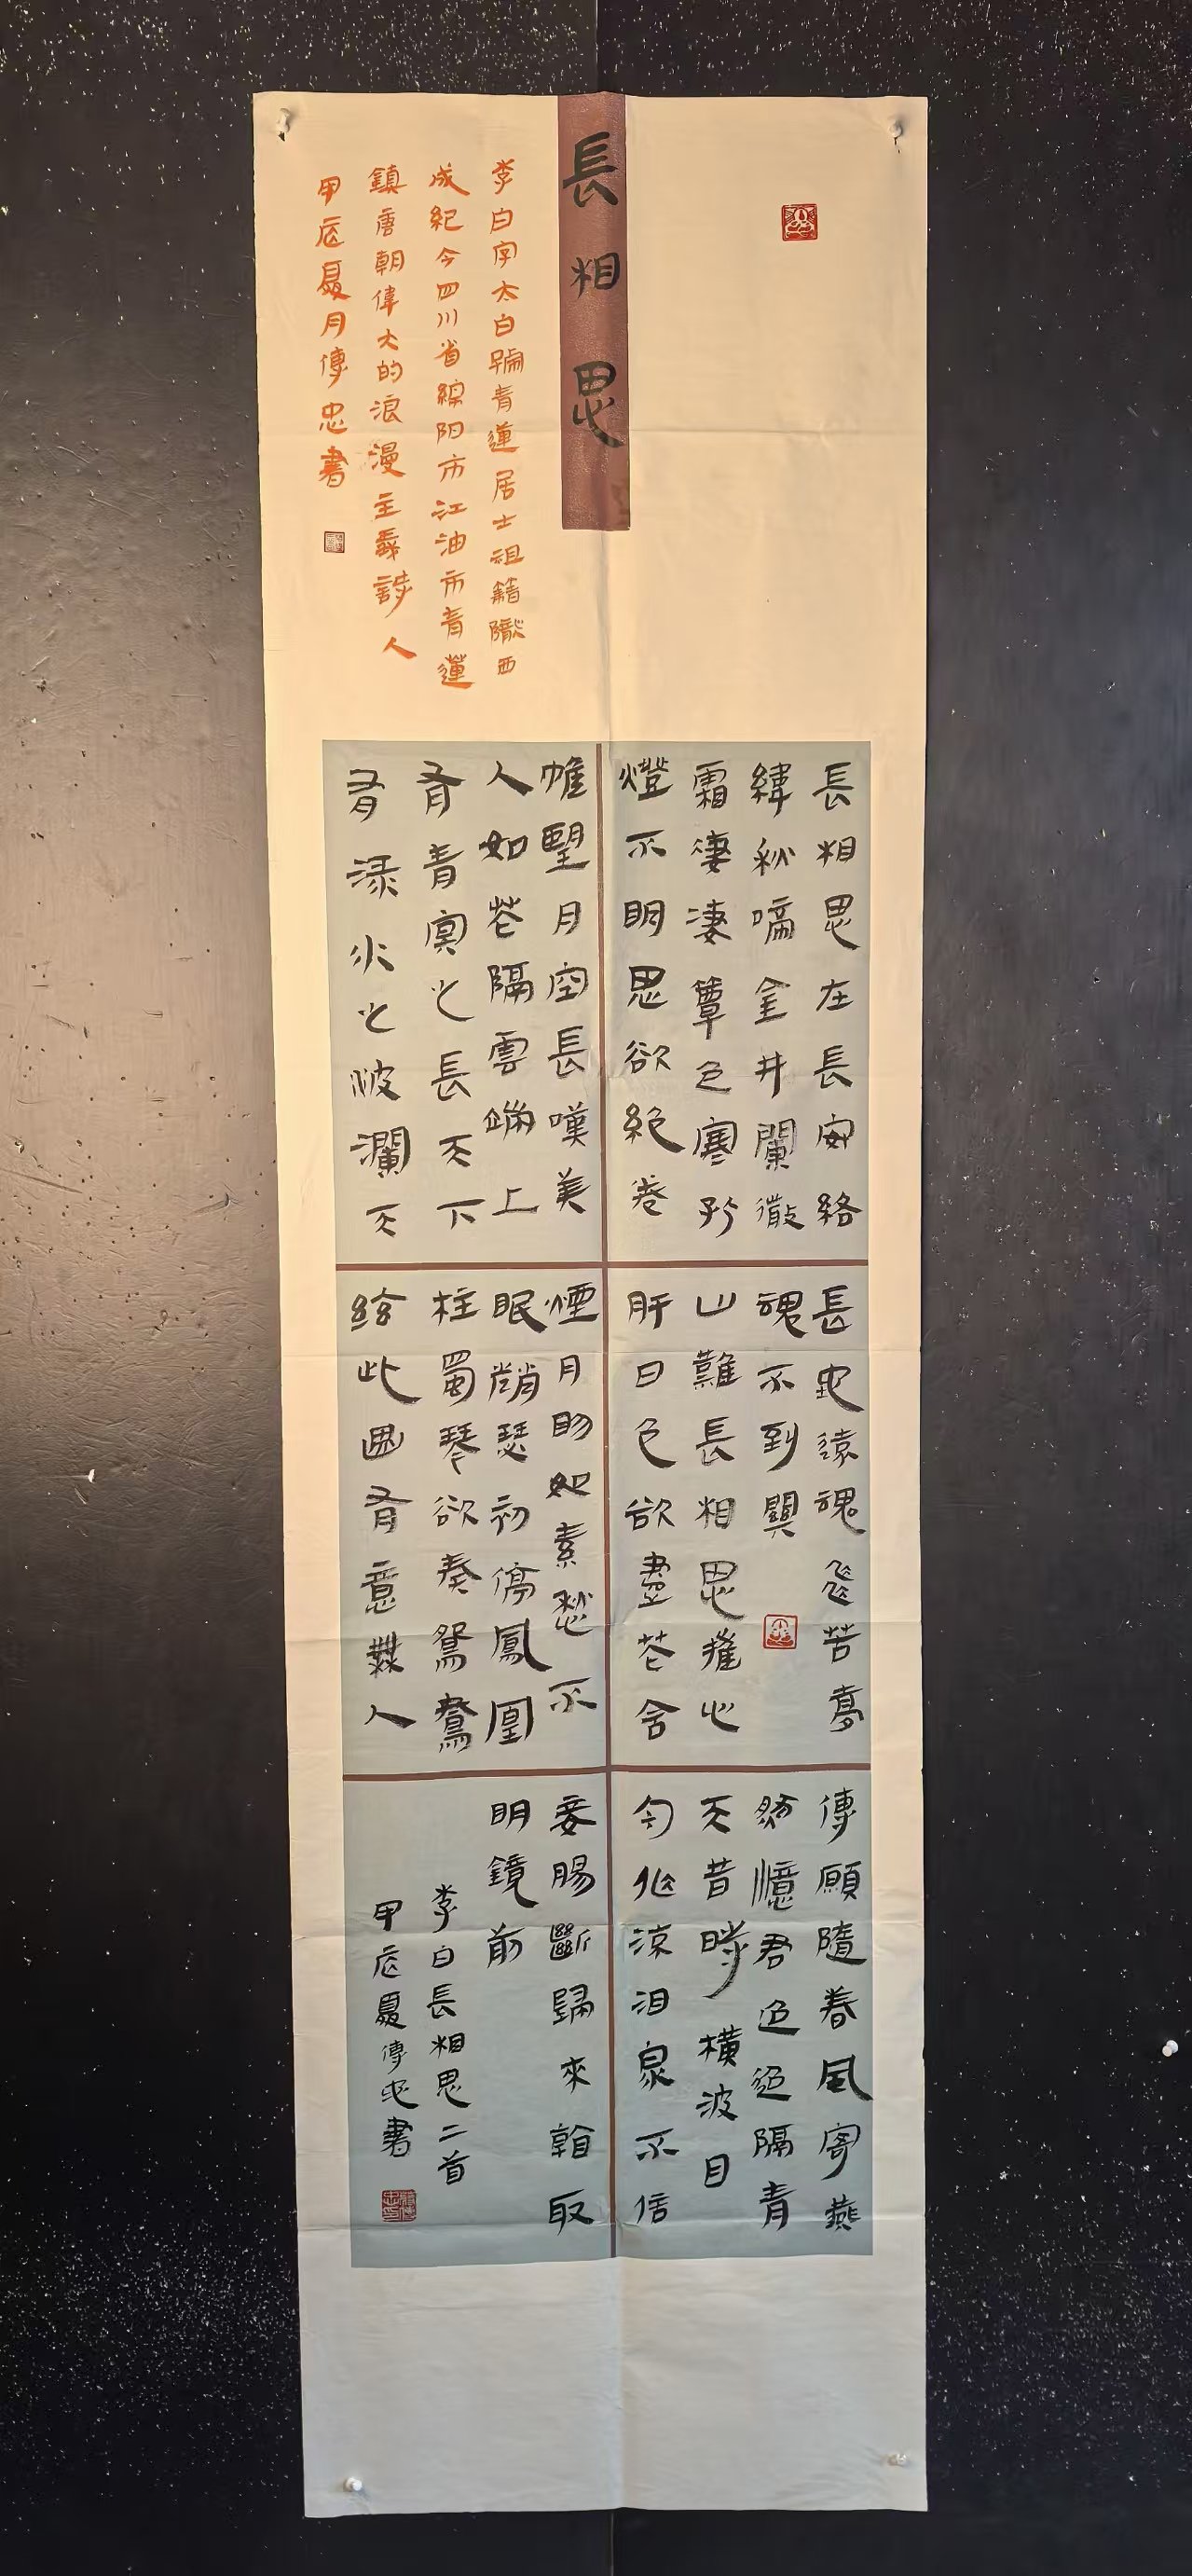 長相思
李白字太白號青蓮居士祖籍隴西
成紀今四川省綿阳市江油市青蓮
鎮唐朝偉大的浪漫主義詩人
甲辰夏月傳忠書
長相思在長安絡
緯秋啼金井闌微
霜淒淒簟色寒孤
燈不明思欲絕卷
帷望月空長嘆美
人如花隔雲端上
有青冥之長天下
有淥水之波瀾天
長地遠魂飛苦夢
魂不到關
山難長相思摧心
肝日色欲盡花含
煙月明如素愁不
眠趙瑟初停鳳凰
柱蜀琴欲奏鴛鴦
絃此曲有意無人
傳願隨春風寄燕
然憶君迢迢隔青
天昔時橫波目
今作流泪泉不信
妾腸斷歸來看取
明鏡前
李白長相思二首
甲辰夏傳忠書